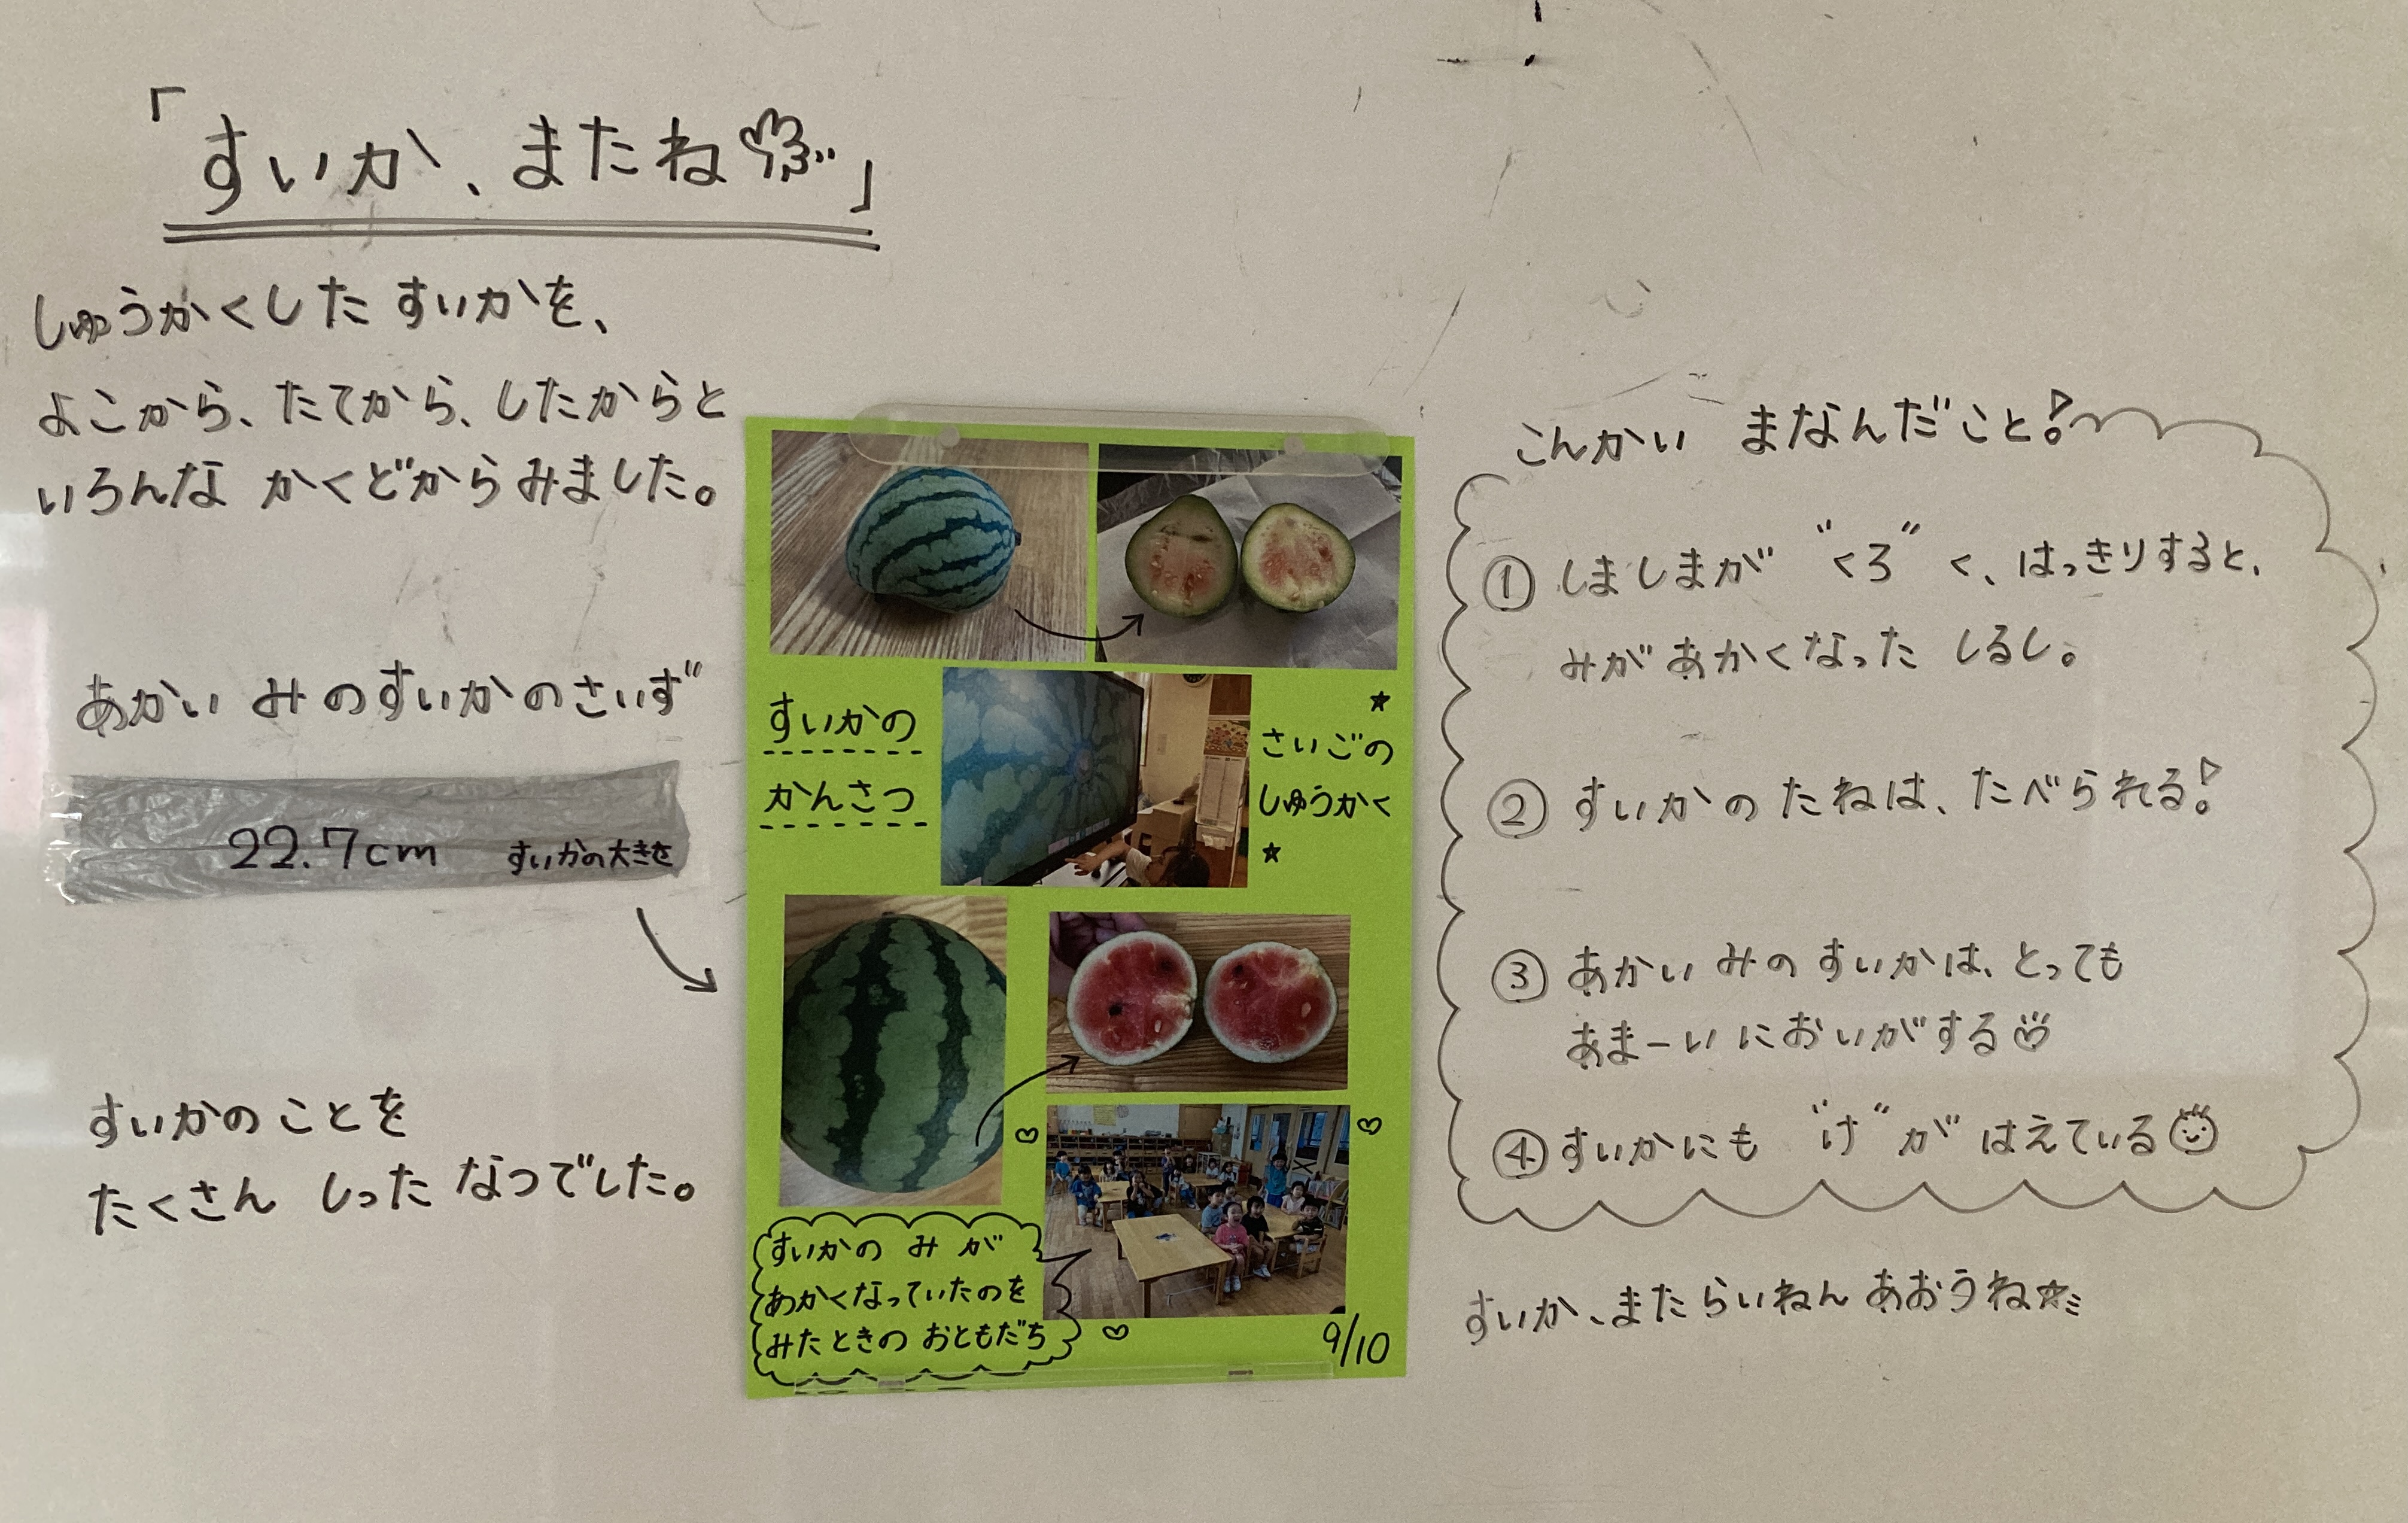 「すいか、またね」
しゅうかくした すいかを、
よこから、たてから、したからと
いろんな かくどからみました。
あかい みのすいかのさいず
22.7cm すいかの大きさ
すいかのことを
たくさん しった なつでした。
すいかの
かんさつ
★
さいごの
しゅうかく
★
すいかの み が
あかくなっていたのを
みたときの おともだち
9/10
こんかい まなんだこと!
① しましまが "くろ" く、はっきりすると、
みがあかくなった しるし。
② すいかの たねは、たべられる!
③ あかい みの すいかは、とっても
あまーい においがする
④ すいかにも "け" が はえている
すいか、また らいねん あおうね☆ミ